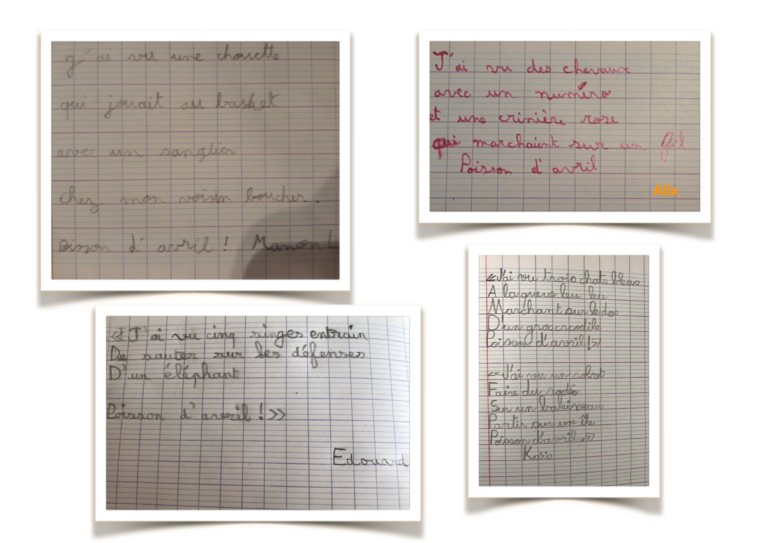 J'ai vu une chouette
qui jouait au basket
avec un sanglier
chez mon voisin boucher.
oisson d'avril ! Manon L
J'ai vu des chevaux
avec un numéro
et une crinière rose
qui marchaint sur un fil
Poisson d'avril
«J'ai vu cinq singes entrain
De sauter sur les défenses
D'un éléphant
Poisson d'avril !»
Edouard
«J'ai vu trois chats bleus
A la queue leu leu
Marchant sur le dos
D'un gros crocodile
Poisson d'avril !»
«J'ai vu un robot
Faire du rodéo
Sur un baleineau
Partir sur une île
Poisson d'avril »